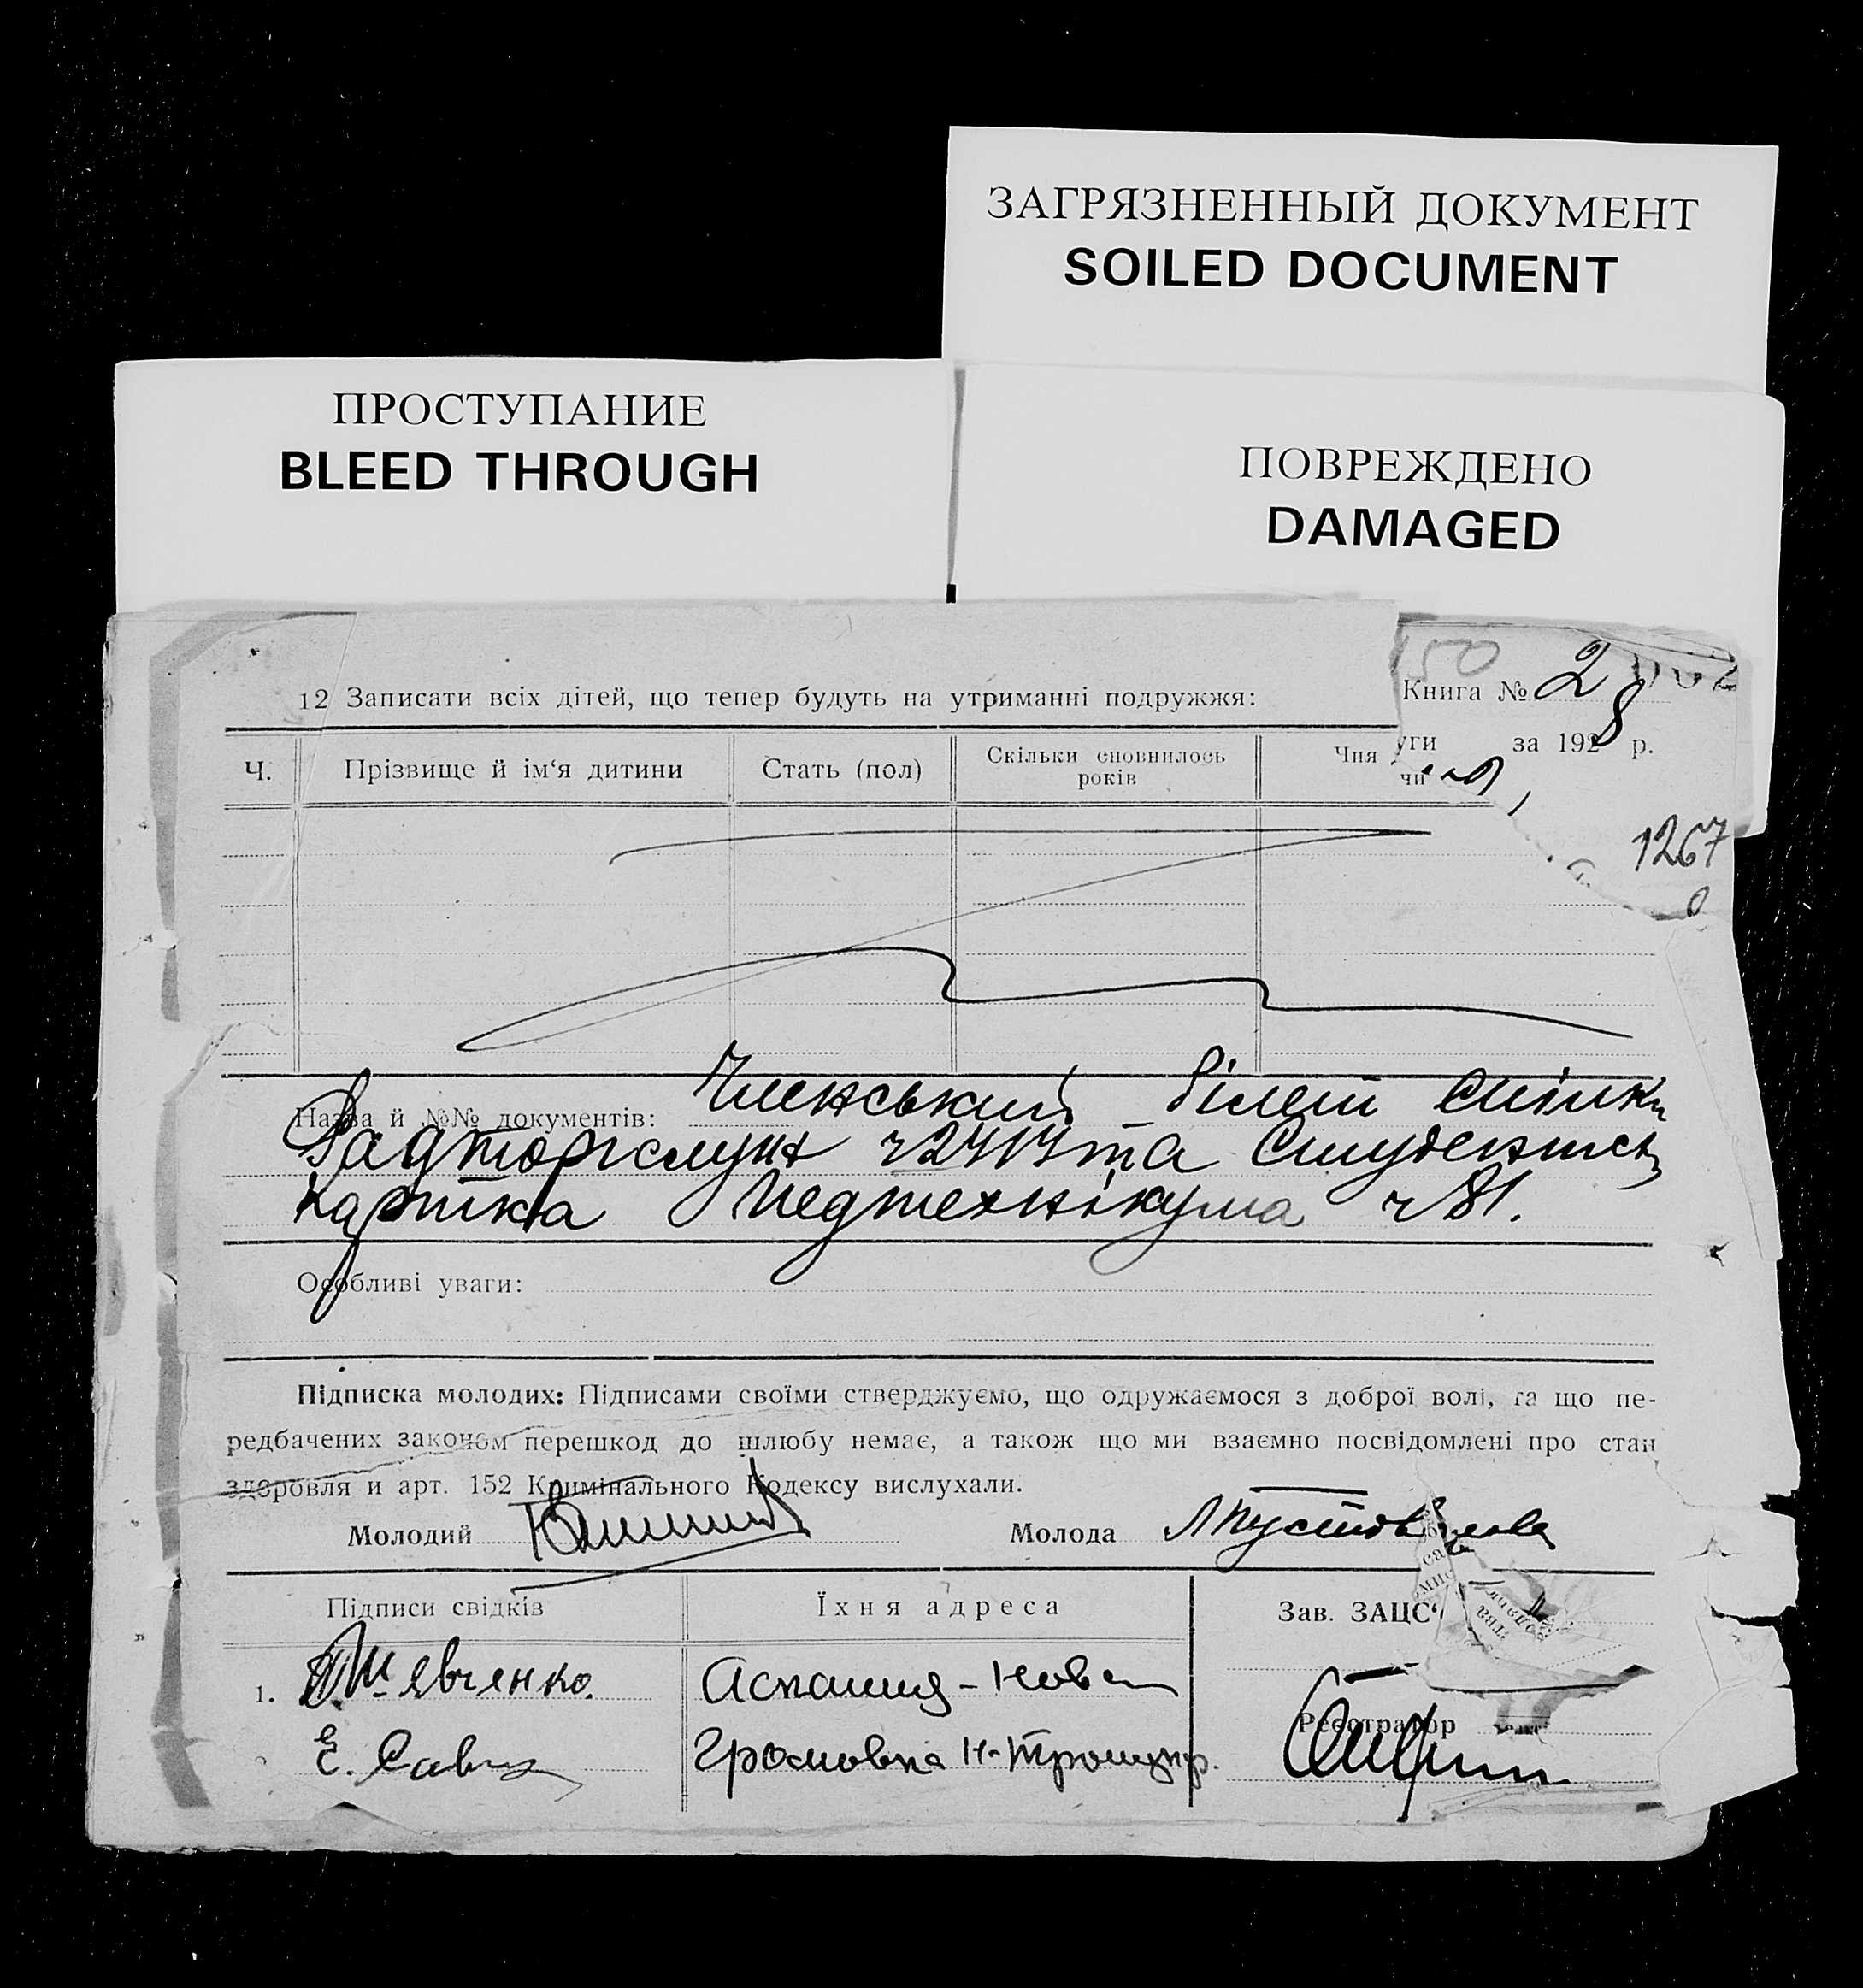 ЗАГРЯЗНЕННЫЙ ДОКУМЕНТ
SOILED DOCUMENT
ПРОСТУПАНИЕ
BLEED THROUGH
ПОВРЕЖДЕНО
DAMAGED
150
Книга № 2
уги за 1928 р.
1267
12 Записати всіх дітей, що тепер будуть на утриманні подружжя:
Ч. Прізвище й ім‘я дитини Стать (пол) Скільки сповнилось років Чия
чи
Назва й №№ документів: Членський білет Спілки
Радторгслуж та Студентськ
картка Педтехнікума ч 81.
Особливі уваги:
Підписка молодих: Підписами своїми стверджуємо, що одружаємося з доброї волі, та що пе-
редбачених законом перешкод до шлюбу немає, а також що ми взаємно посвідомлені про стан
здоровля и арт. 152 Кримінального Кодексу вислухали.
Молодий Молода
Підписи свідків Їхня адреса Зав. ЗАЦС‘
1. Шевченко. Аскания-Нова
Е. Громовка Н-Троицкр.
Реєстратор